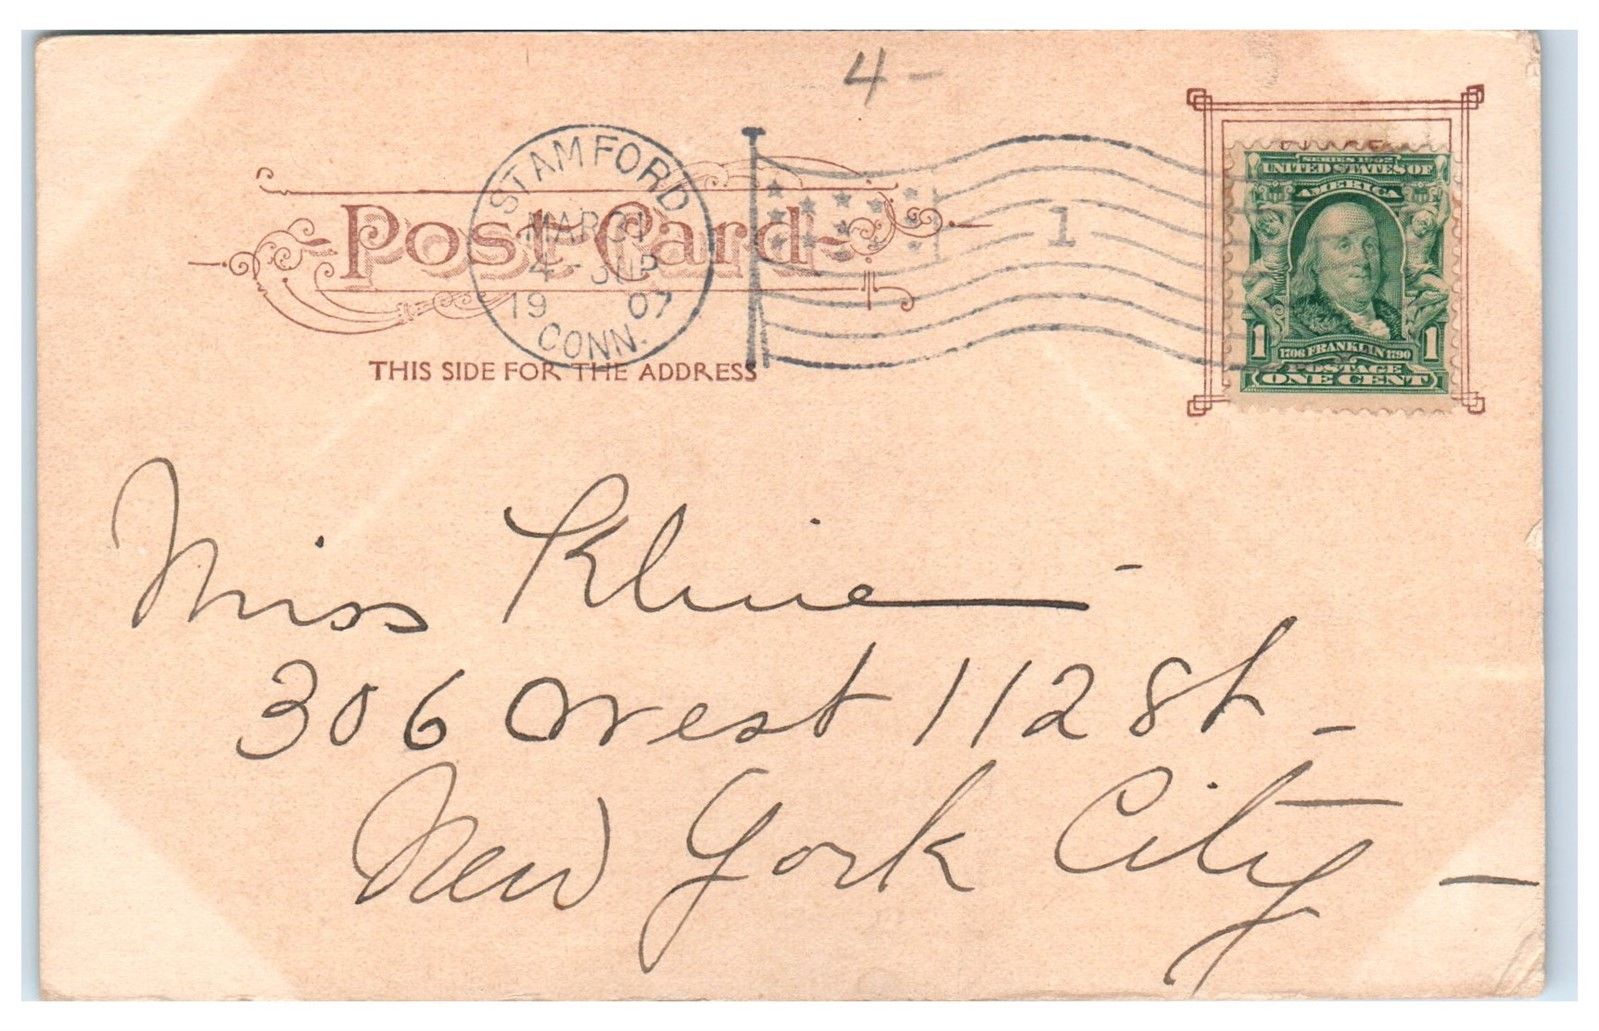 4 -
STAMFORD
MAR 31
4 - PM
1907
CONN.
1
Post Card
THIS SIDE FOR THE ADDRESS
SERIES 1902
UNITED STATES OF
AMERICA
1 1706 FRANKLIN 1790 1
POSTAGE
ONE CENT
Miss Kline -
306 West 112 St -
New York City -